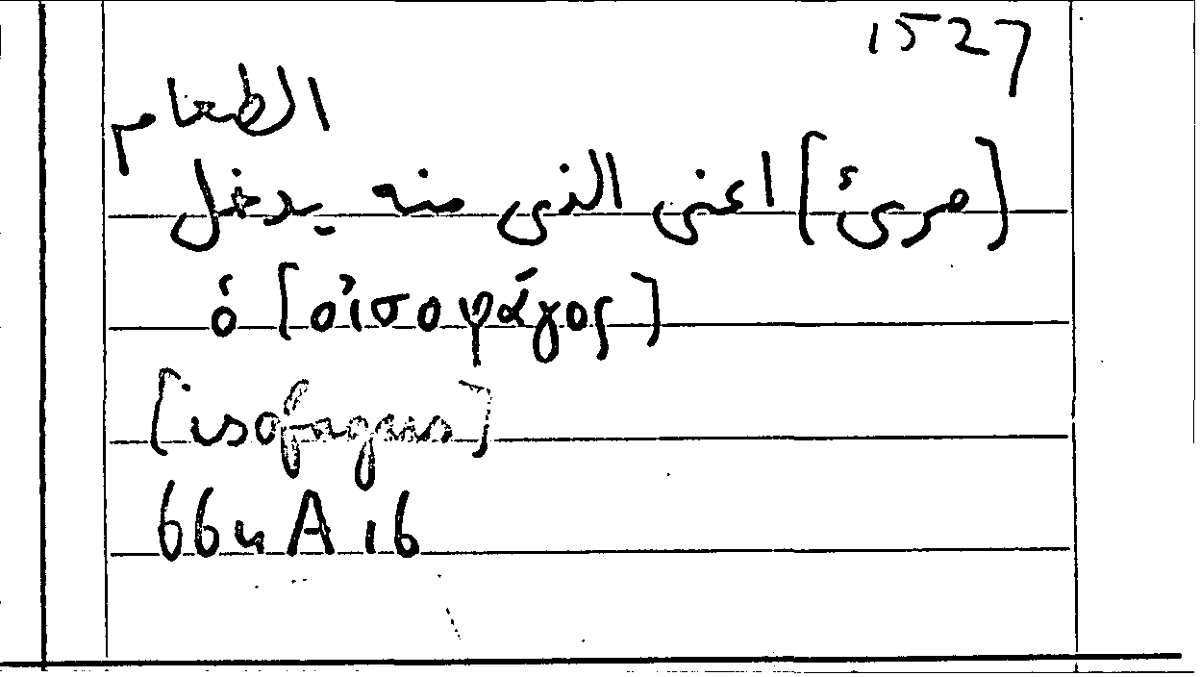 1527
الطعام
[مرئ] اعنى الذى منه يدخل
ὁ [οἰσοφάγος]
[isofagus]
664 A 16